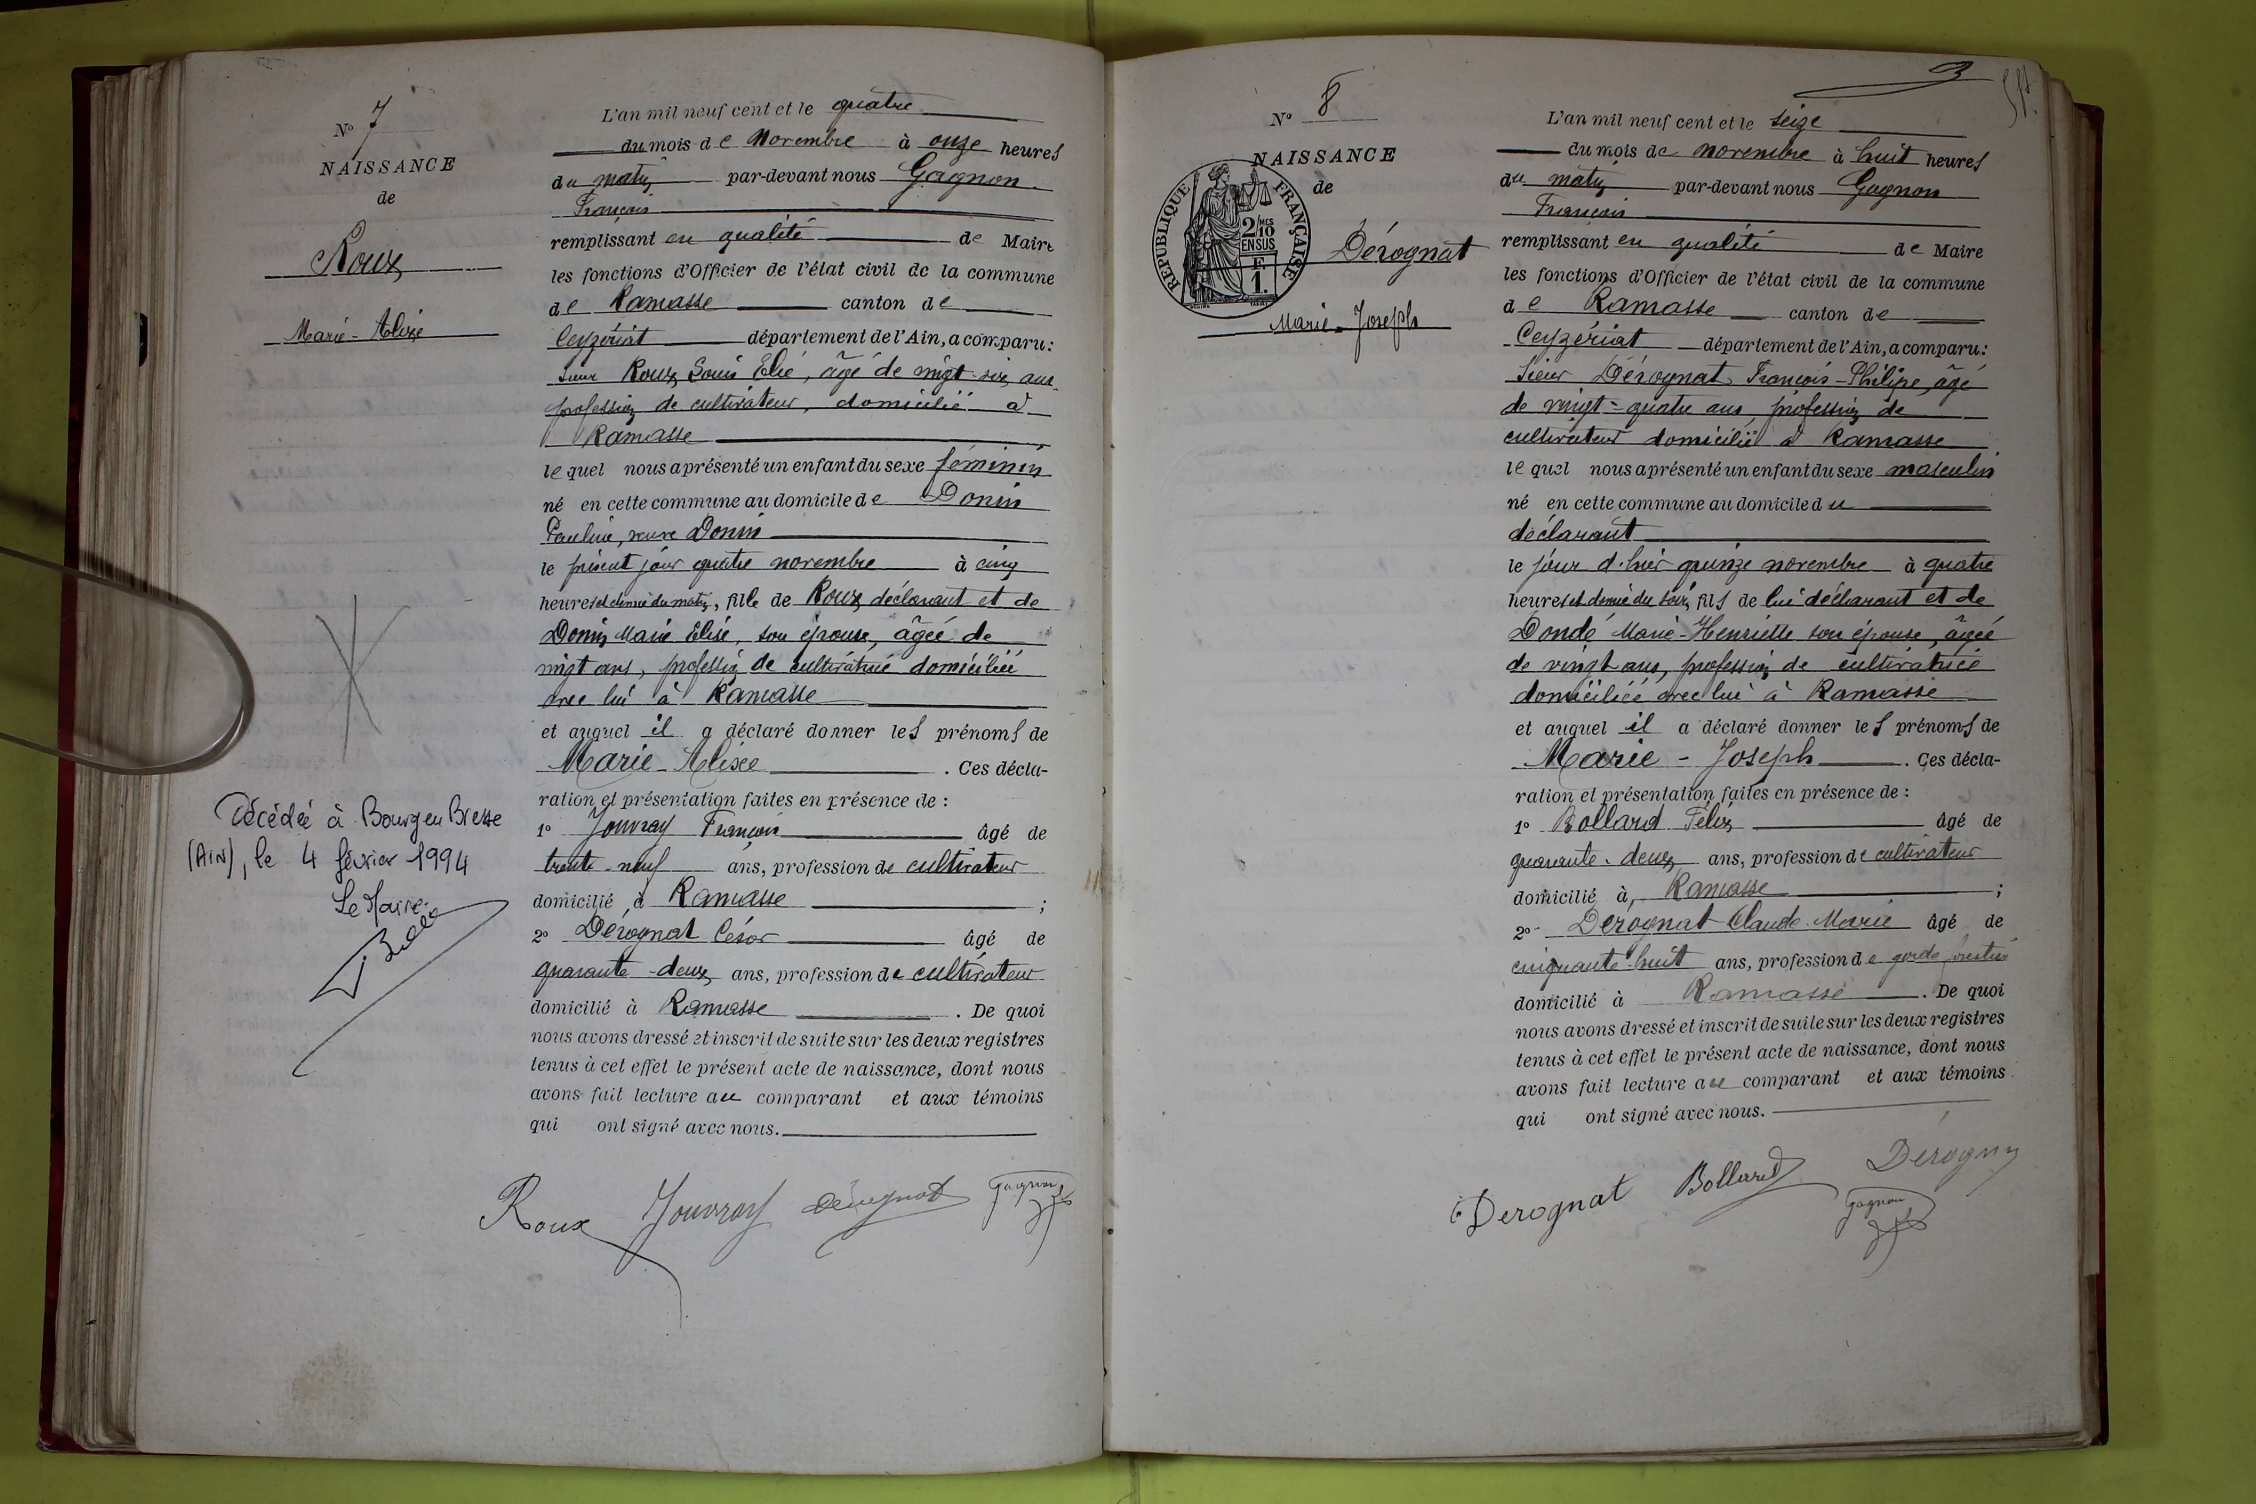 N° 7
NAISSANCE
de
Roux
Marie-Alixée
L'an mil neuf cent et le quatre
du mois de Novembre à onze heures
du matin par-devant nous Gagnon
François
remplissant en qualité de Maire
les fonctions d'Officier de l'état civil de la commune
de Ramasse canton de
Ceyzériat département de l'Ain, a comparu:
Sieur Roux Louis Elie, âgé de vingt-six ans
profession de cultivateur, domicilié à
Ramasse
lequel nous a présenté un enfant du sexe féminin
né en cette commune au domicile de Donin
Pauline, veuve Donin
le présent jour quatre novembre à cinq
heures et demie du matin, fille de Roux déclarant et de
Donin Marie Elise, son épouse, âgée de
vingt ans, profession de cultivatrice domiciliée
avec lui à Ramasse
et auquel il a déclaré donner les prénoms de
Marie-Alixée. Ces décla-
ration et présentation faites en présence de :
1° Jouvray François âgé de
trente-neuf ans, profession de cultivateur
domicilié à Ramasse ;
2° Dérognat César âgé de
quarante-deux ans, profession de cultivateur
domicilié à Ramasse. De quoi
nous avons dressé et inscrit de suite sur les deux registres
tenus à cet effet le présent acte de naissance, dont nous
avons fait lecture au comparant et aux témoins
qui ont signé avec nous.
Roux Jouvray Dérognat Gagnon
Décédée à Bourg en Bresse
(AIN), le 4 février 1994
Le Maire.
3
N° 8
NAISSANCE
de
RÉPUBLIQUE FRANÇAISE
2/10 MES
EN SUS
F.
1.
Dérognat
Marie-Joseph
L'an mil neuf cent et le seize
du mois de novembre à huit heures
du matin par-devant nous Gagnon
François
remplissant en qualité de Maire
les fonctions d'Officier de l'état civil de la commune
de Ramasse canton de
Ceyzériat département de l'Ain, a comparu:
Sieur Dérognat François-Philipe, âgé
de vingt-quatre ans profession de
cultivateur domicilié à Ramasse
lequel nous a présenté un enfant du sexe masculin
né en cette commune au domicile du
déclarant
le jour d'hier quinze novembre à quatre
heures et demie du soir, fils de lui déclarant et de
Dondé Marie-Henriette son épouse, âgée
de vingt ans, profession de cultivatrice
domiciliée avec lui à Ramasse
et auquel il a déclaré donner les prénoms de
Marie-Joseph. Ces décla-
ration et présentation faites en présence de :
1° Bollard Félix âgé de
quarante-deux ans, profession de cultivateur
domicilié à Ramasse ;
2° Dérognat Claude-Marie âgé de
cinquante-huit ans, profession de garde forestier
domicilié à Ramasse. De quoi
nous avons dressé et inscrit de suite sur les deux registres
tenus à cet effet le présent acte de naissance, dont nous
avons fait lecture au comparant et aux témoins
qui ont signé avec nous.
Derognat Bollard Dérognat
Gagnon